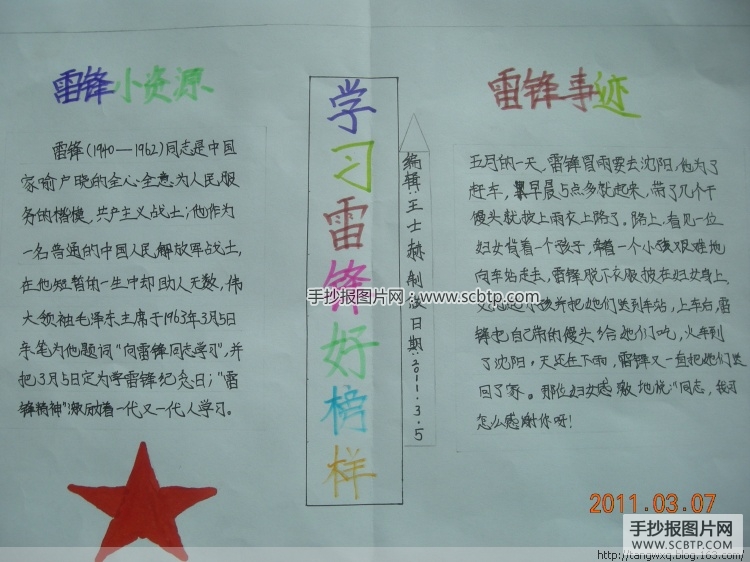 雷锋小资源
雷锋(1940—1962)同志是中国
家喻户晓的全心全意为人民服
务的楷模，共产主义战士；他作为
一名普通的中国人民解放军战士，
在他短暂的一生中却助人无数，伟
大领袖毛泽东主席于1963年3月5日
亲笔为他题词“向雷锋同志学习”，并
把3月5日定为学雷锋纪念日；“雷
锋精神”激励着一代又一代人学习。
学习雷锋好榜样
编辑：王士赫 制没日期：2011.3.5
雷锋事迹
五月的一天，雷锋冒雨要去沈阳，他为了
赶车，早晨5点多就起来，带了几个干
馒头就披上雨衣上路了。路上，看见一位
妇女背着一个孩子，牵着一个小孩艰难地
向车站走去，雷锋脱下衣服披在妇女身上，
又小孩并把她们送到车站，上车后，雷
锋把自己带的馒头给她们吃，火车到
了沈阳。天还在下雨，雷锋又一直把她们送
回了家。那位妇女感激地说：“同志，我可
怎么感谢你呀！
手抄报图片网：www.scbtp.com
2011.03.07
手抄报图片网
WWW.SCBTP.COM
http://tangwxq.blog.163.com/